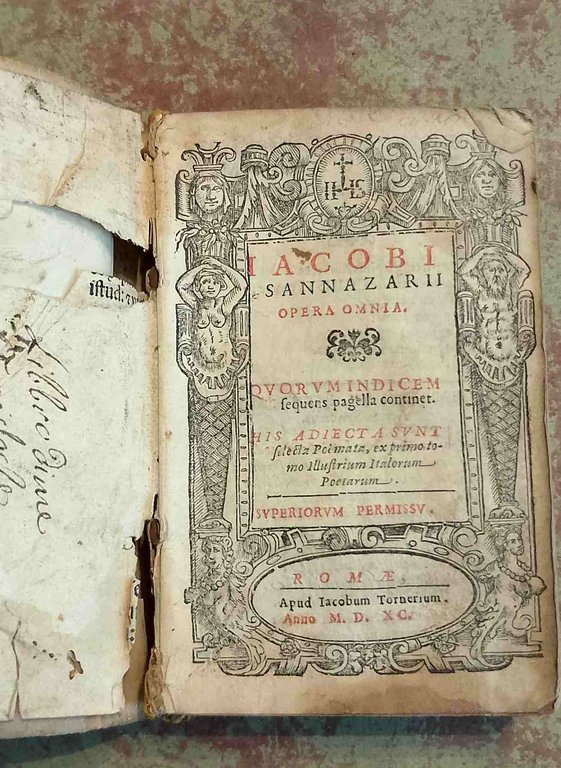 istud:
Libro d'une
IHS
IACOBI
SANNAZARII
OPERA OMNIA.
QVORVM INDICEM
sequens pagella continet.
HIS ADIECTA SVNT
selecta Poëmata, ex primo to-
mo Illustrium Italorum
Poetarum.
SVPERIORVM PERMISSV.
ROMÆ
Apud Iacobum Tornerium.
Anno M. D. XC.